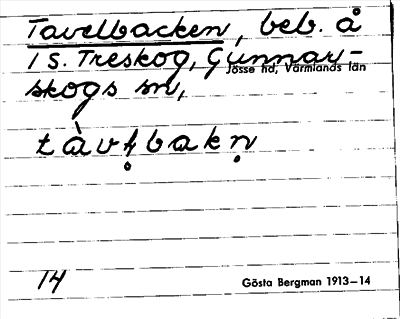 Tavelbacken, beb. å
1 S. Treskog, Gunnar-
Jösse hd, Värmlands län
skogs sn,
14
Gösta Bergman 1913–14